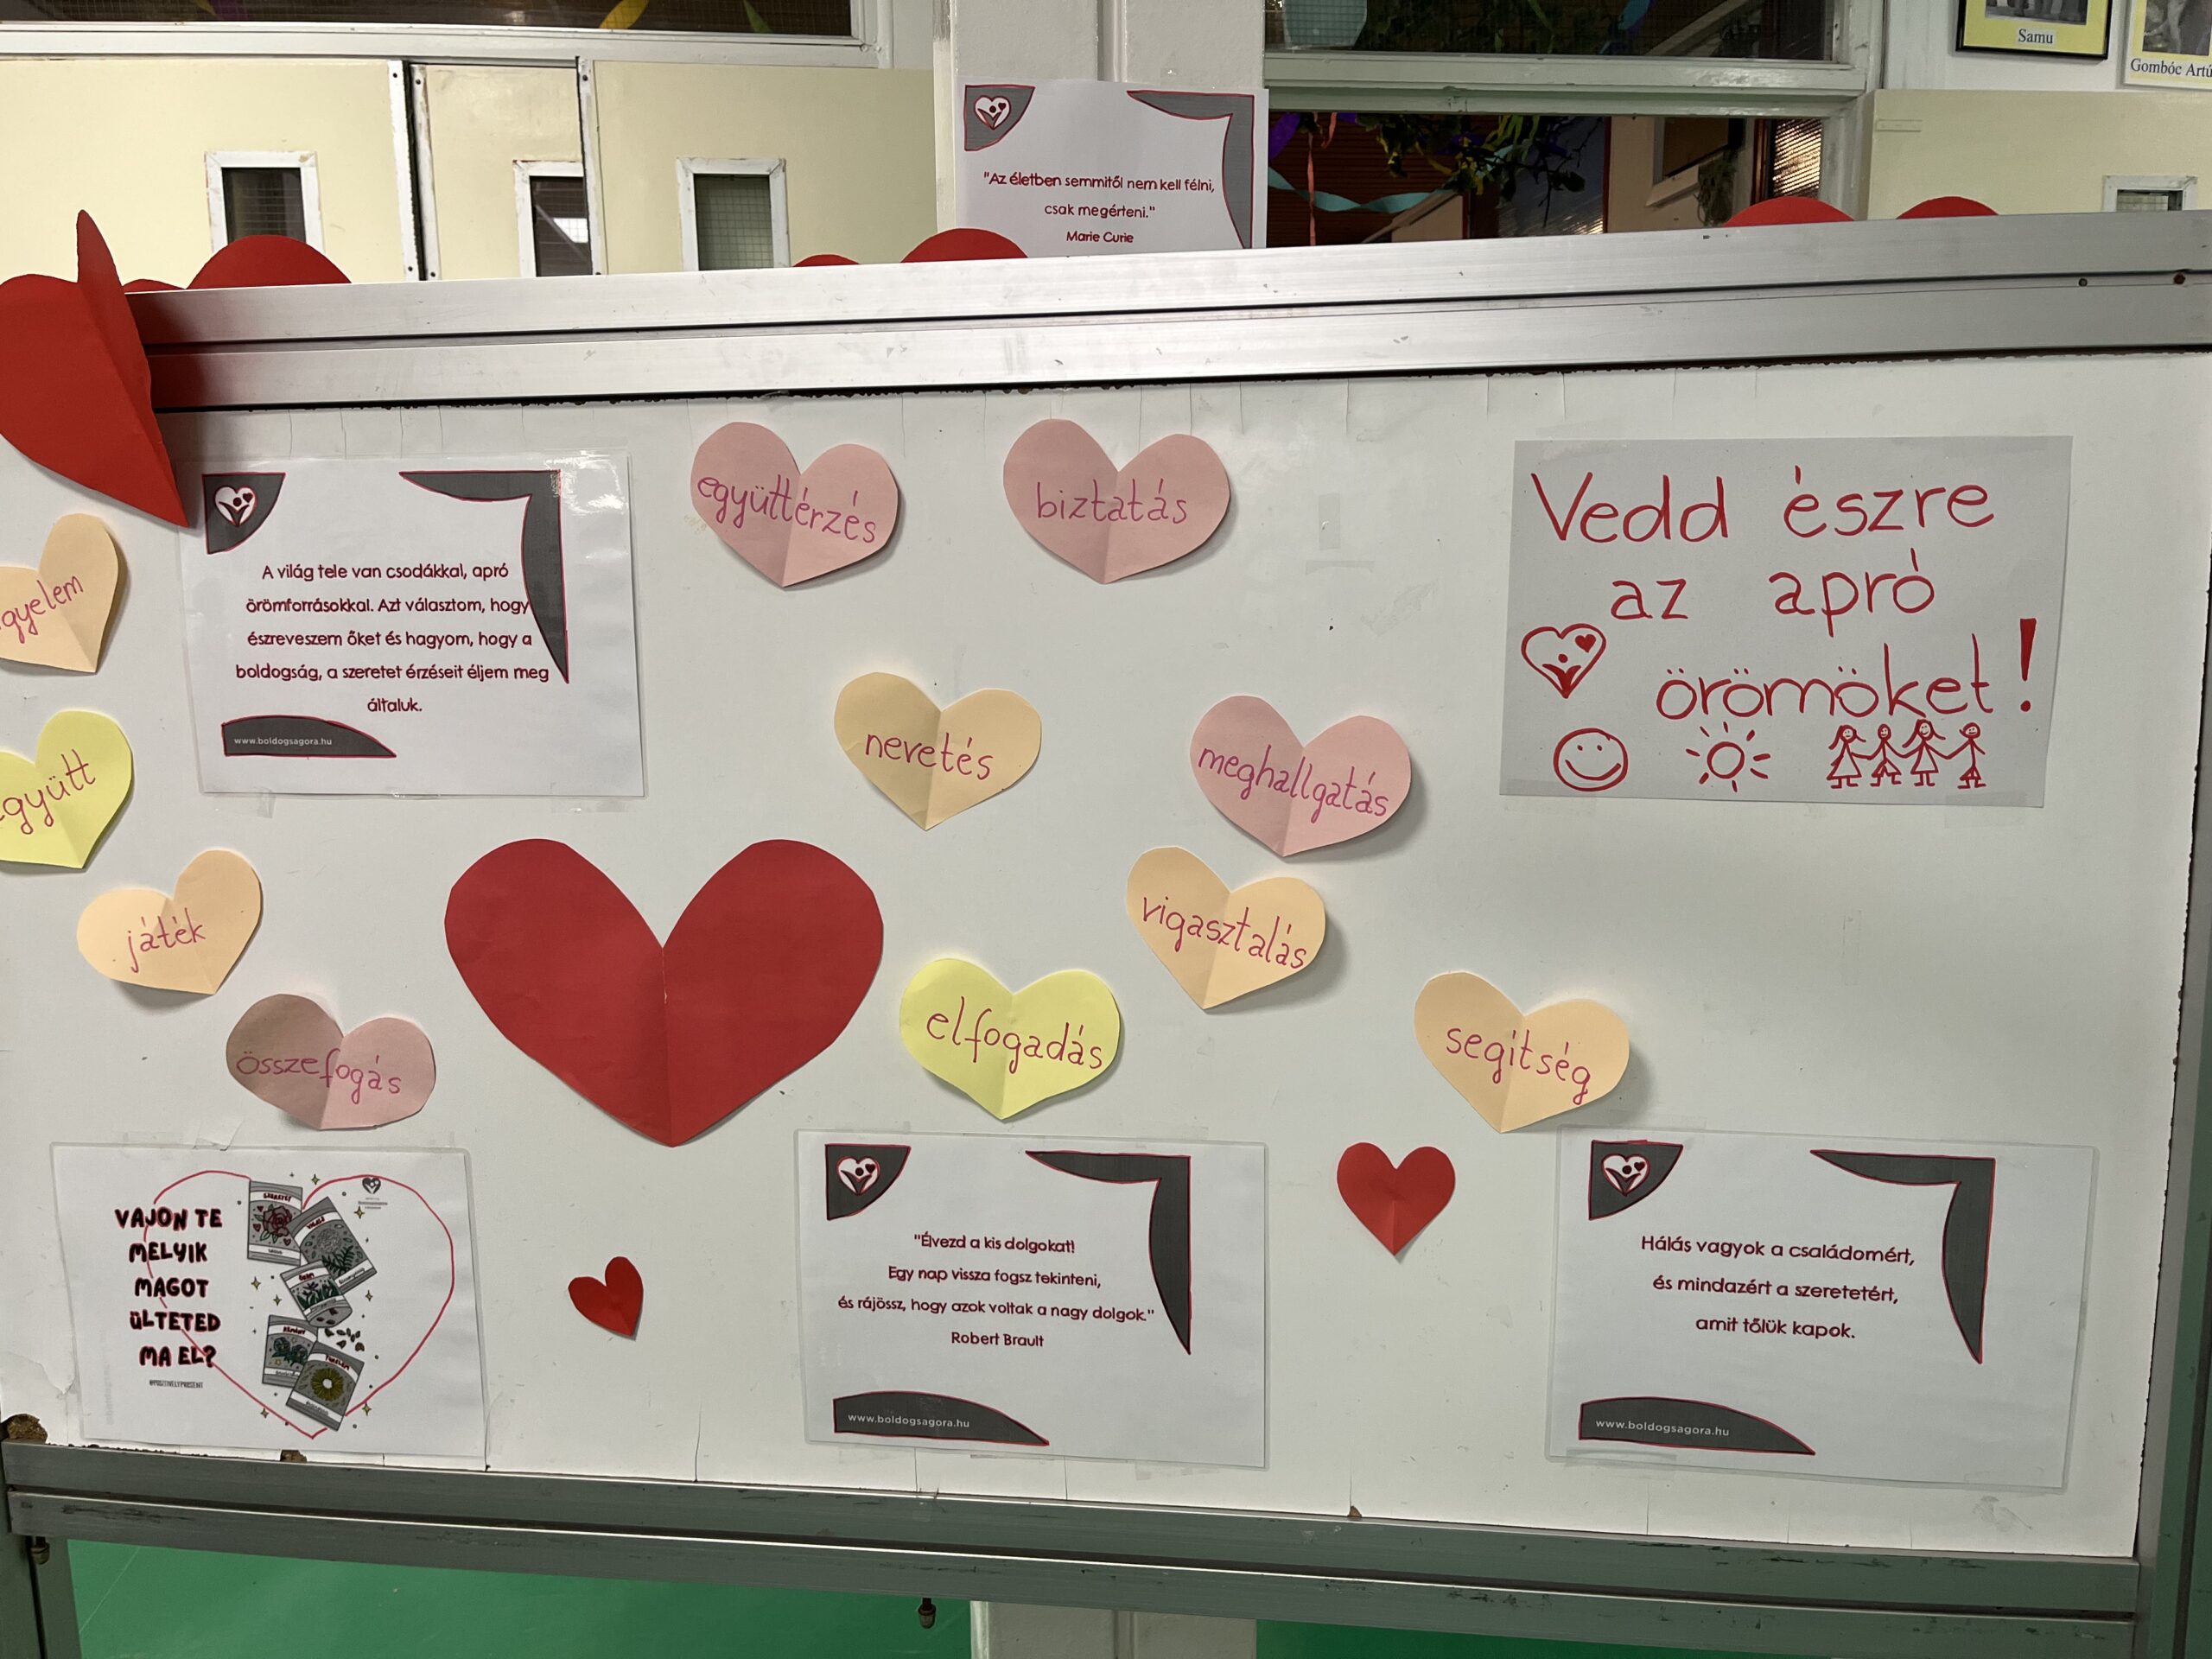 Samu
Gombóc Artú
"Az életben semmitől nem kell félni,
csak megérteni."
Marie Curie
A világ tele van csodákkal, apró
örömforrásokkal. Azt választom, hogy
észreveszem őket és hagyom, hogy a
boldogság, a szeretet érzéseit éljem meg
általuk.
www.boldogsagora.hu
együttérzés
biztatás
Vedd észre
az apró
örömöket!
gyelem
nevetés
meghallgatás
együtt
játék
vigasztalás
elfogadás
segítség
összefogás
VAJON TE
MELYIK
MAGOT
ÜLTETED
MA EL?
@POSITIVELYPRESENT
SZERETET
"Élvezd a kis dolgokat!
Egy nap vissza fogsz tekinteni,
és rájössz, hogy azok voltak a nagy dolgok."
Robert Brault
www.boldogsagora.hu
Hálás vagyok a családomért,
és mindazért a szeretetért,
amit tőlük kapok.
www.boldogsagora.hu